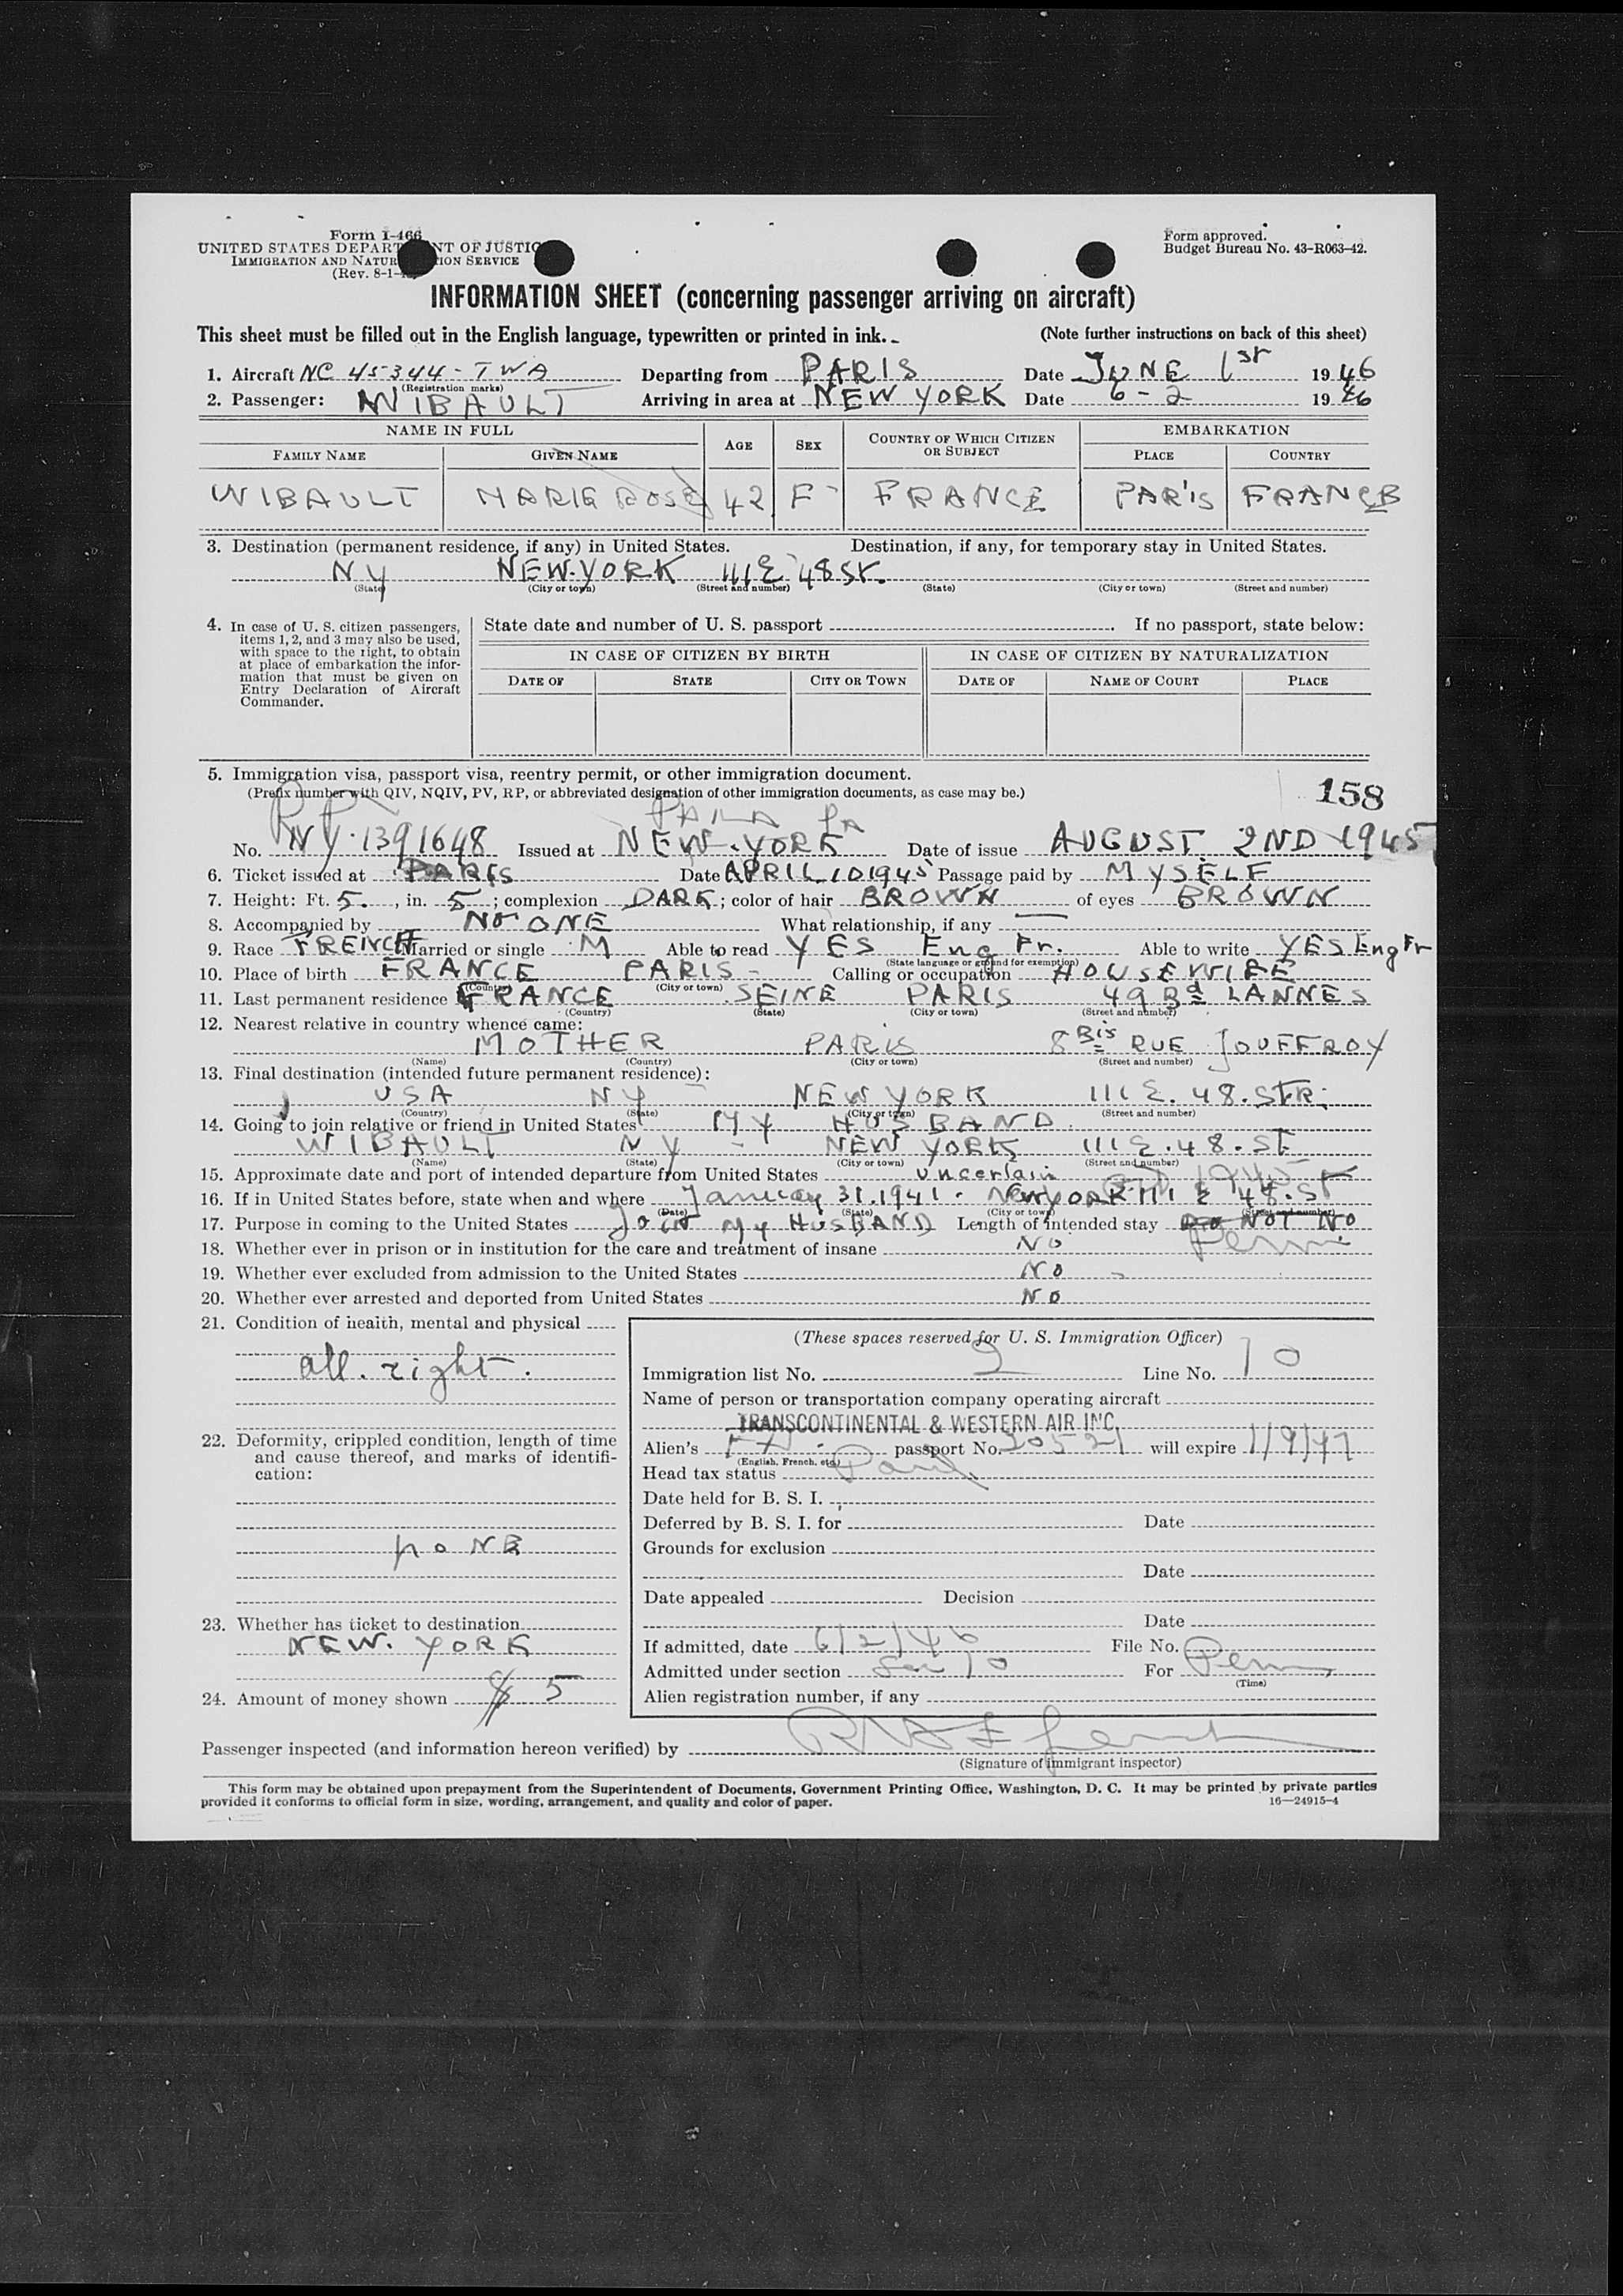 Form I-466
UNITED STATES DEPARTMENT OF JUSTICE
IMMIGRATION AND NATURALIZATION SERVICE
(Rev. 8-1-
Form approved.
Budget Bureau No. 43-R063-42.
INFORMATION SHEET (concerning passenger arriving on aircraft)
This sheet must be filled out in the English language, typewritten or printed in ink. (Note further instructions on back of this sheet)
1. Aircraft NC 45344-TWA Departing from PARIS Date JUNE 1st 1946
(Registration marks)
2. Passenger: WIBAULT Arriving in area at NEW YORK Date 6-2 1946
NAME IN FULL AGE SEX COUNTRY OF WHICH CITIZEN OR SUBJECT EMBARKATION
FAMILY NAME GIVEN NAME PLACE COUNTRY
WIBAULT MARIE ROSE 42 F FRANCE PARIS FRANCE
3. Destination (permanent residence, if any) in United States. Destination, if any, for temporary stay in United States.
NY NEW-YORK 111 E 48 St.
(State) (City or town) (Street and number) (State) (City or town) (Street and number)
4. In case of U. S. citizen passengers, items 1, 2, and 3 may also be used, with space to the right, to obtain at place of embarkation the information that must be given on Entry Declaration of Aircraft Commander.
State date and number of U. S. passport If no passport, state below:
IN CASE OF CITIZEN BY BIRTH IN CASE OF CITIZEN BY NATURALIZATION
DATE OF STATE CITY OR TOWN DATE OF NAME OF COURT PLACE
5. Immigration visa, passport visa, reentry permit, or other immigration document.
(Prefix number with QIV, NQIV, PV, RP, or abbreviated designation of other immigration documents, as case may be.)
158
RP PHILA PA
No. NY-1391648 Issued at NEW-YORK Date of issue AUGUST 2ND 1945
6. Ticket issued at PARIS Date APRIL 10 1945 Passage paid by MYSELF
7. Height: Ft. 5. , in. 5 ; complexion DARK ; color of hair BROWN of eyes BROWN
8. Accompanied by NO ONE What relationship, if any —
9. Race FRENCH Married or single M Able to read YES Eng Fr. Able to write YES Eng Fr
(State language or ground for exemption)
10. Place of birth FRANCE PARIS - Calling or occupation HOUSEWIFE
(Country) (City or town)
11. Last permanent residence FRANCE SEINE PARIS 49 Bd LANNES
(Country) (State) (City or town) (Street and number)
12. Nearest relative in country whence came:
MOTHER PARIS 8 Bis RUE JOUFFROY
(Name) (Country) (City or town) (Street and number)
13. Final destination (intended future permanent residence):
USA NY NEW YORK 111 E. 48. STR.
(Country) (State) (City or town) (Street and number)
14. Going to join relative or friend in United States MY HUSBAND
WIBAULT NY - NEW YORK 111 E. 48. ST
(Name) (State) (City or town) (Street and number)
15. Approximate date and port of intended departure from United States uncertain
16. If in United States before, state when and where January 31.1941. New YORK 111 E 48. ST
(Date) (State) (City or town) (Street and number)
17. Purpose in coming to the United States Join My HUSBAND Length of intended stay Do NOT NO
Perm
18. Whether ever in prison or in institution for the care and treatment of insane NO
19. Whether ever excluded from admission to the United States NO
20. Whether ever arrested and deported from United States NO
21. Condition of health, mental and physical
all. right.
22. Deformity, crippled condition, length of time and cause thereof, and marks of identification:
noNE
23. Whether has ticket to destination
NEW. YORK
24. Amount of money shown $ 5
(These spaces reserved for U. S. Immigration Officer)
Immigration list No. 2 Line No. 10
Name of person or transportation company operating aircraft
TRANSCONTINENTAL & WESTERN AIR INC.
Alien's Fr. passport No. 20521 will expire 1/9/47
(English, French, etc.)
Head tax status Paid
Date held for B. S. I.
Deferred by B. S. I. for Date
Grounds for exclusion
Date
Date appealed Decision
Date
If admitted, date 6/2/46 File No.
Admitted under section Sec 10 For Perm
(Time)
Alien registration number, if any
Passenger inspected (and information hereon verified) by
(Signature of immigrant inspector)
This form may be obtained upon prepayment from the Superintendent of Documents, Government Printing Office, Washington, D. C. It may be printed by private parties
provided it conforms to official form in size, wording, arrangement, and quality and color of paper. 16—24915-4